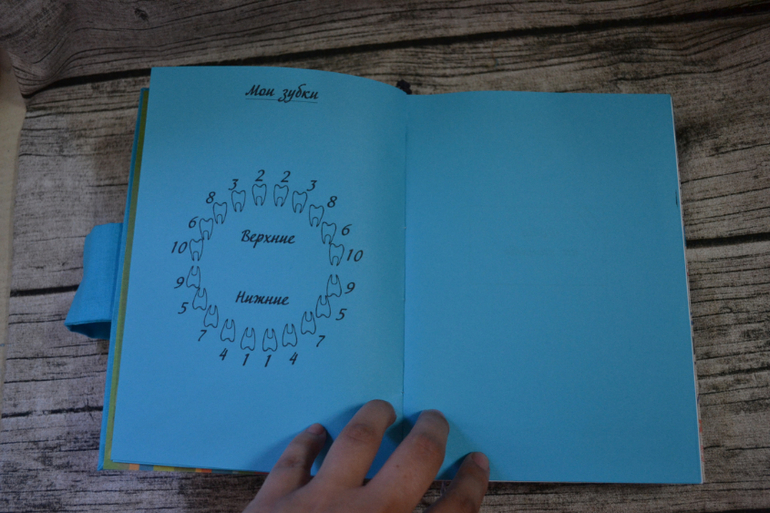 Мои зубки
2 2
3 3
8 8
6 6
Верхние
10 10
9 9
Нижние
5 5
7 7
4 1 1 4